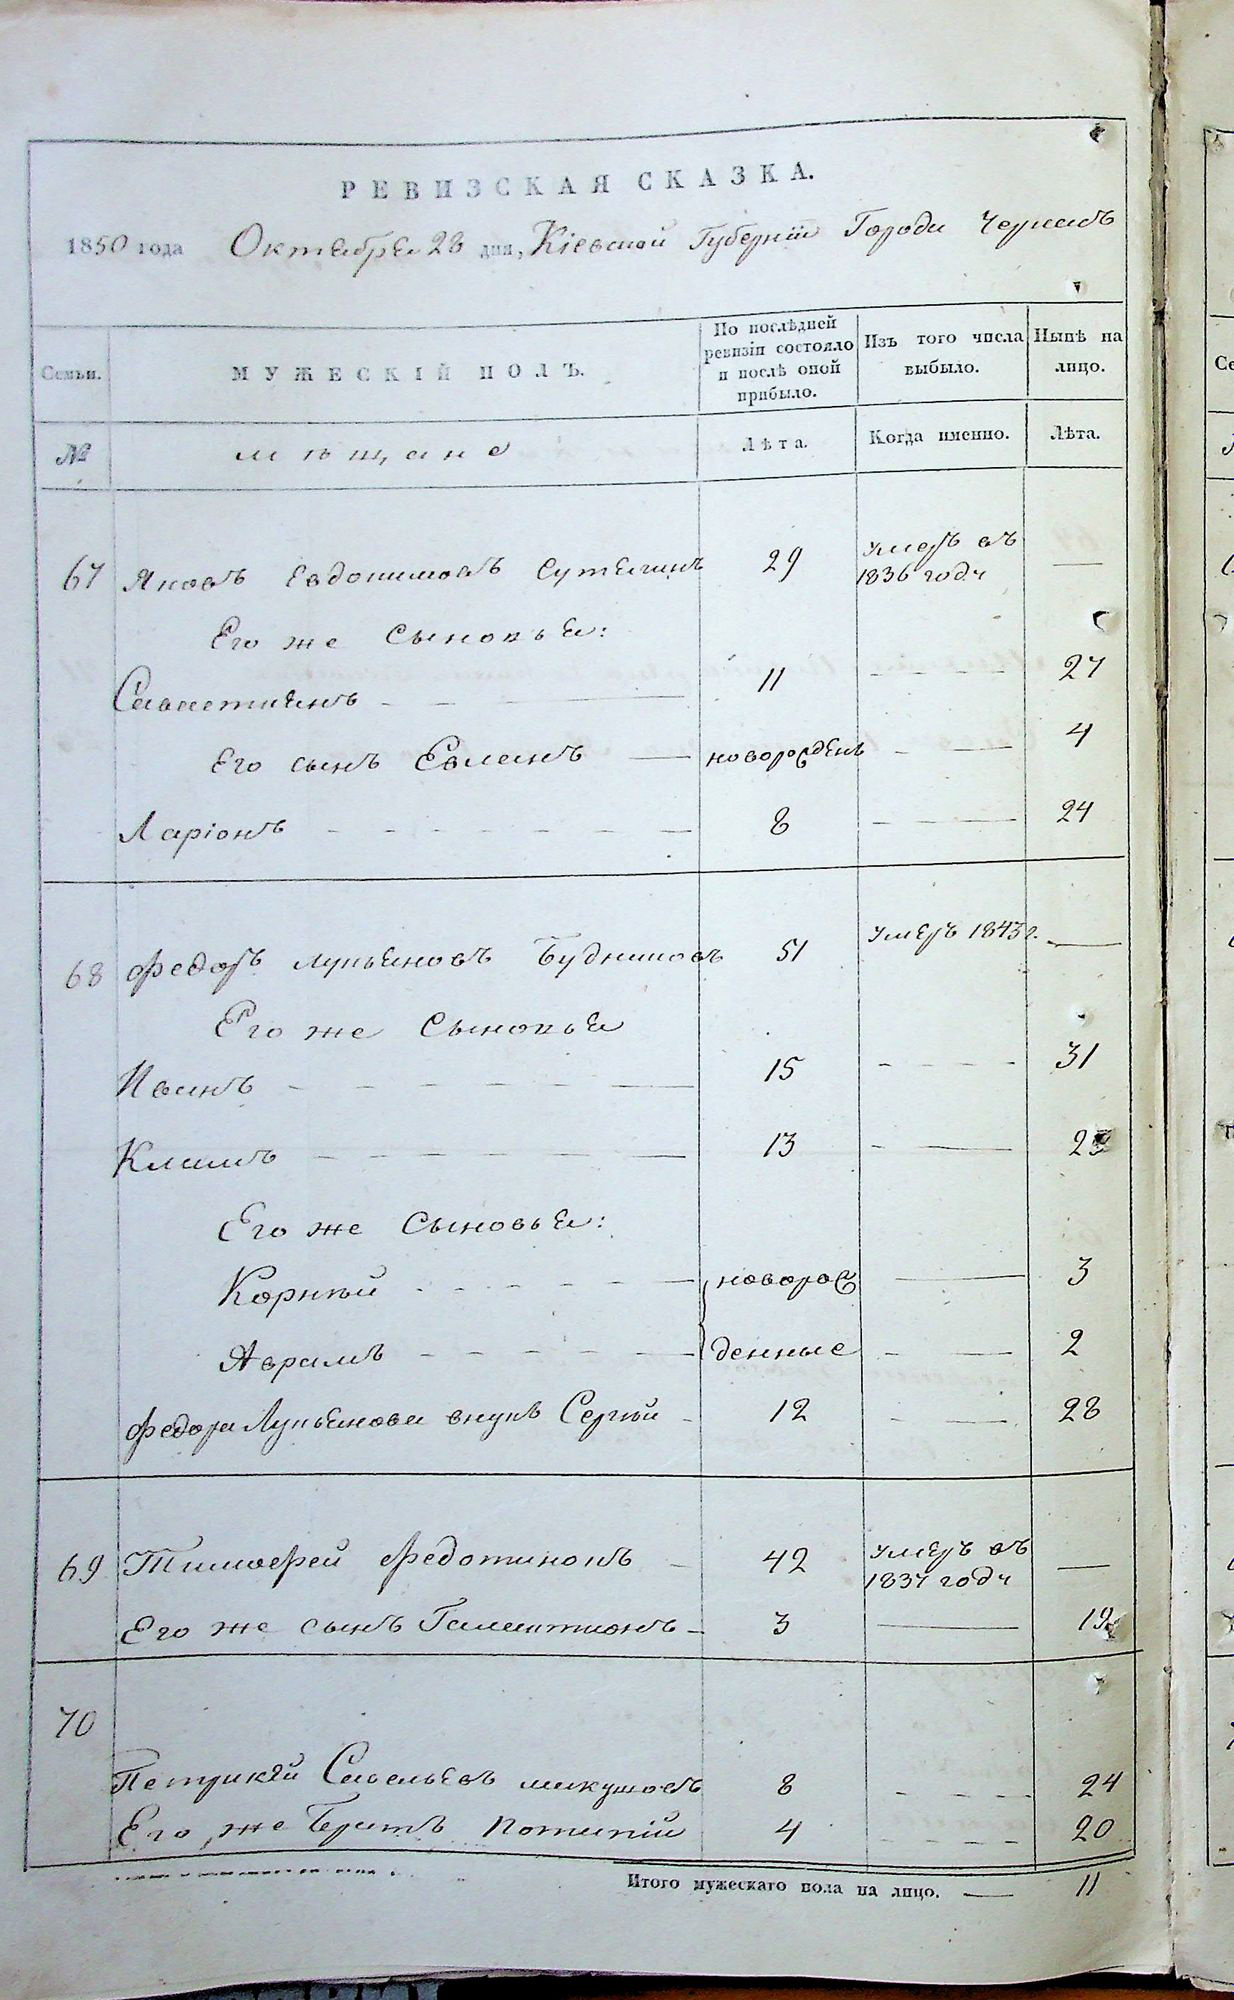 РЕВИЗСКАЯ СКАЗКА.
1850 года Октября 28 дня, Кіевской Губерніи Города Черкасъ
Семьи. МУЖЕСКІЙ ПОЛЪ. По послѣдней ревизіи состояло и послѣ оной прибыло. Изъ того числа выбыло. Нынѣ на лицо.
№ мѣщане Лѣта. Когда именно. Лѣта.
67 Яковъ Евдокимовъ 29 Умеръ въ 1836 году —
Его же Сыновья:
Савастіянъ 11 27
Его сынъ новорожденъ 4
Ларіонъ 8 24
68 Федоръ Лукьяновъ Будниковъ 51 Умеръ 1843 г. —
Его же Сыновья
Иванъ 15 31
Климъ 13 29
Его же Сыновья:
Корнѣй новорож 3
Аврамъ денные 2
Федора Лукьянова внукъ Сергѣй 12 28
69 Тимофей 42 Умеръ въ 1837 году —
Его же сынъ Галактионъ 3 19
70
Патрикѣй Савельевъ 8 24
Его же Братъ Потапій 4 20
Итого мужескаго пола на лицо. — 11